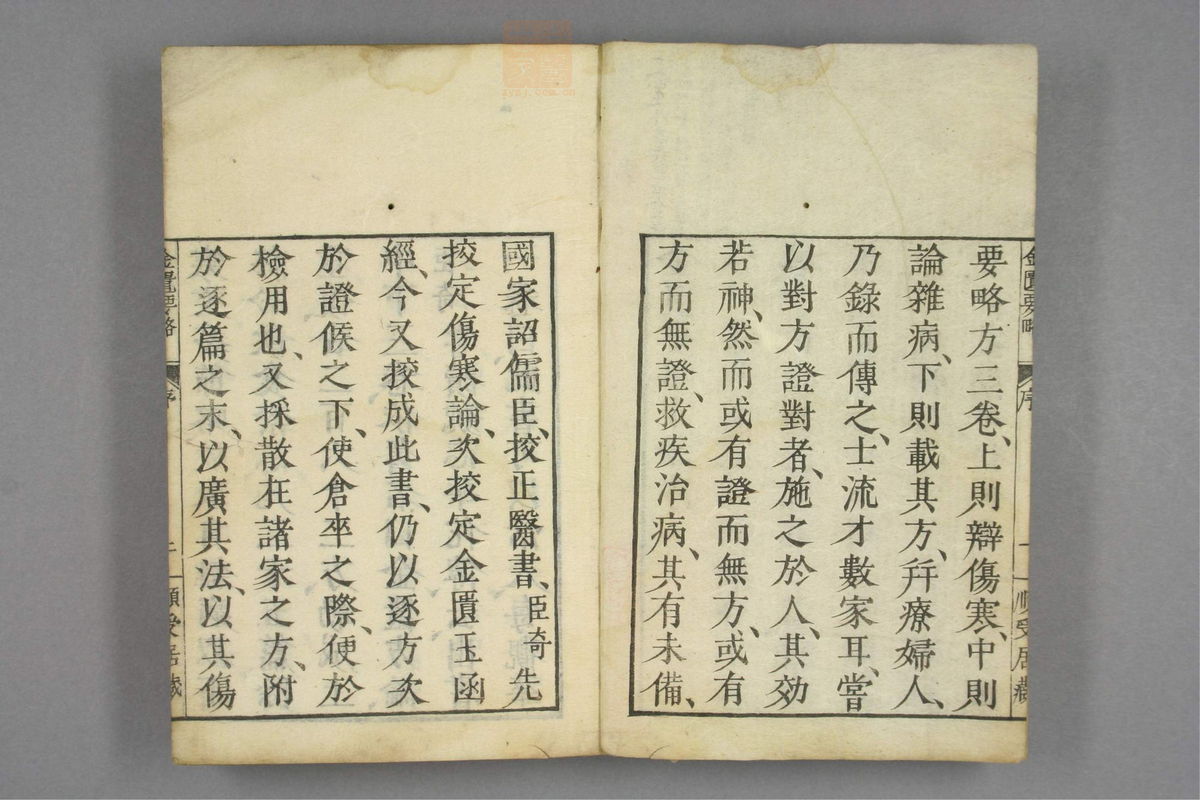 要略方三卷、上則辯傷寒、中則
論雜病、下則載其方、幷療婦人、
乃錄而傳之、士流才數家耳、嘗
以對方證對者、施之於人、其効
若神、然而或有證而無方、或有
方而無證、救疾治病、其有未備、
國家詔儒臣、挍正醫書、臣奇先
挍定傷寒論、次挍定金匱玉函
經、今又挍成此書、仍以逐方次
於證候之下、使倉卒之際、便於
檢用也、又採散在諸家之方、附
於逐篇之末、以廣其法、以其傷
金匱要略
序
二
順受居藏